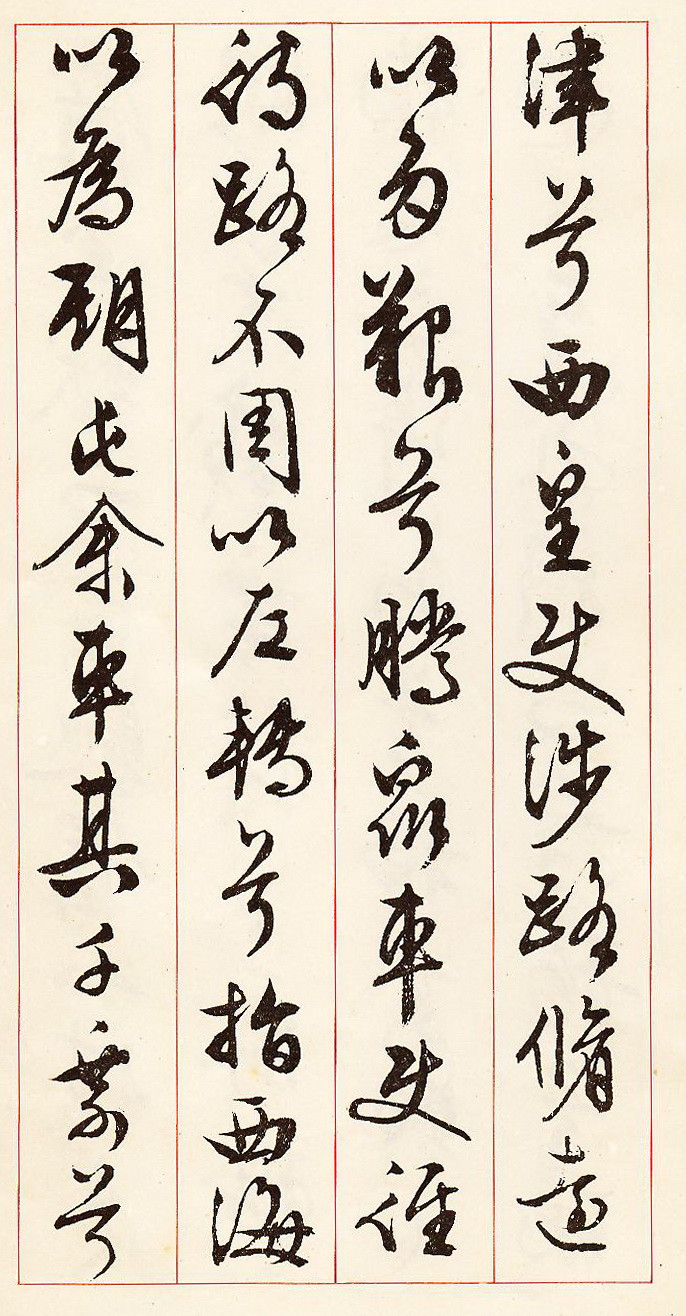 津兮西皇使涉路脩遠
以多艱兮騰衆車使徑
待路不周以左轉兮指西海
以為期屯余車其千乘兮